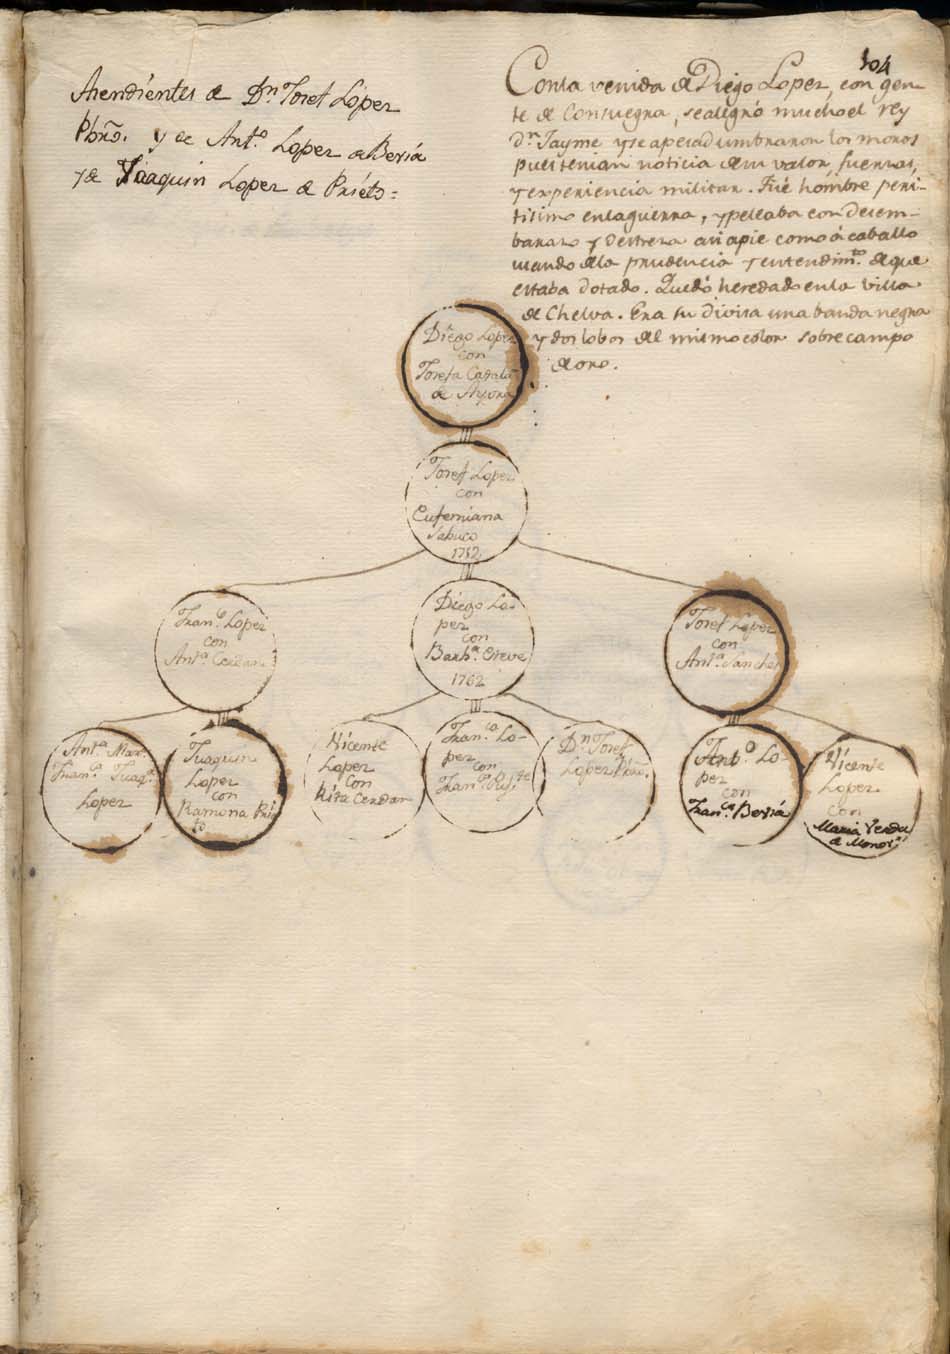 104
Asendientes de Dn. Josef López
Pbro. y de Anto. Lopez de Bería
y de Joaquin Lopez de Priéto=
Con la venida de Diego Lopez, con gen-
te de Consuegra, se alegró mucho el rey
Dn. Jayme y se apesadumbraron los moros
pues tenian noticia de su valor, fuerzas,
y experiencia militar. Fué hombre peri-
tisimo en la guerra, y peleaba con desem-
barazo y destreza asi apie como á caballo
usando de la prudencia y entendimto. de que
estaba dotado. Quedó heredado en la villa
de Chelva. Era su divisa una banda negra
y dos lobos del mismo color sobre campo
de oro.
Diego Lopez
con
Josefa Catala
de Ayora
Josef Lopez
con
Eufemiana
Sabuco
1752
Frano. Lopez
con
Anta. Cerdan
Diego Lo-
pez
con
Barba. Esteve
1762
Josef Lopez
con
Anta. Sanchez
Anta. Mar.
Frana. Juaqa.
Lopez
Juaquin
Lopez
con
Ramona Prié
to
Vicente
Lopez
con
Rita Cerdan
Franco. Lo-
pez
con
Frana.
Dn. Josef
Lopez Pbro.
Anto. Lo-
pez
con
Franca. Bería
Vicente
Lopez
con
Maria
de